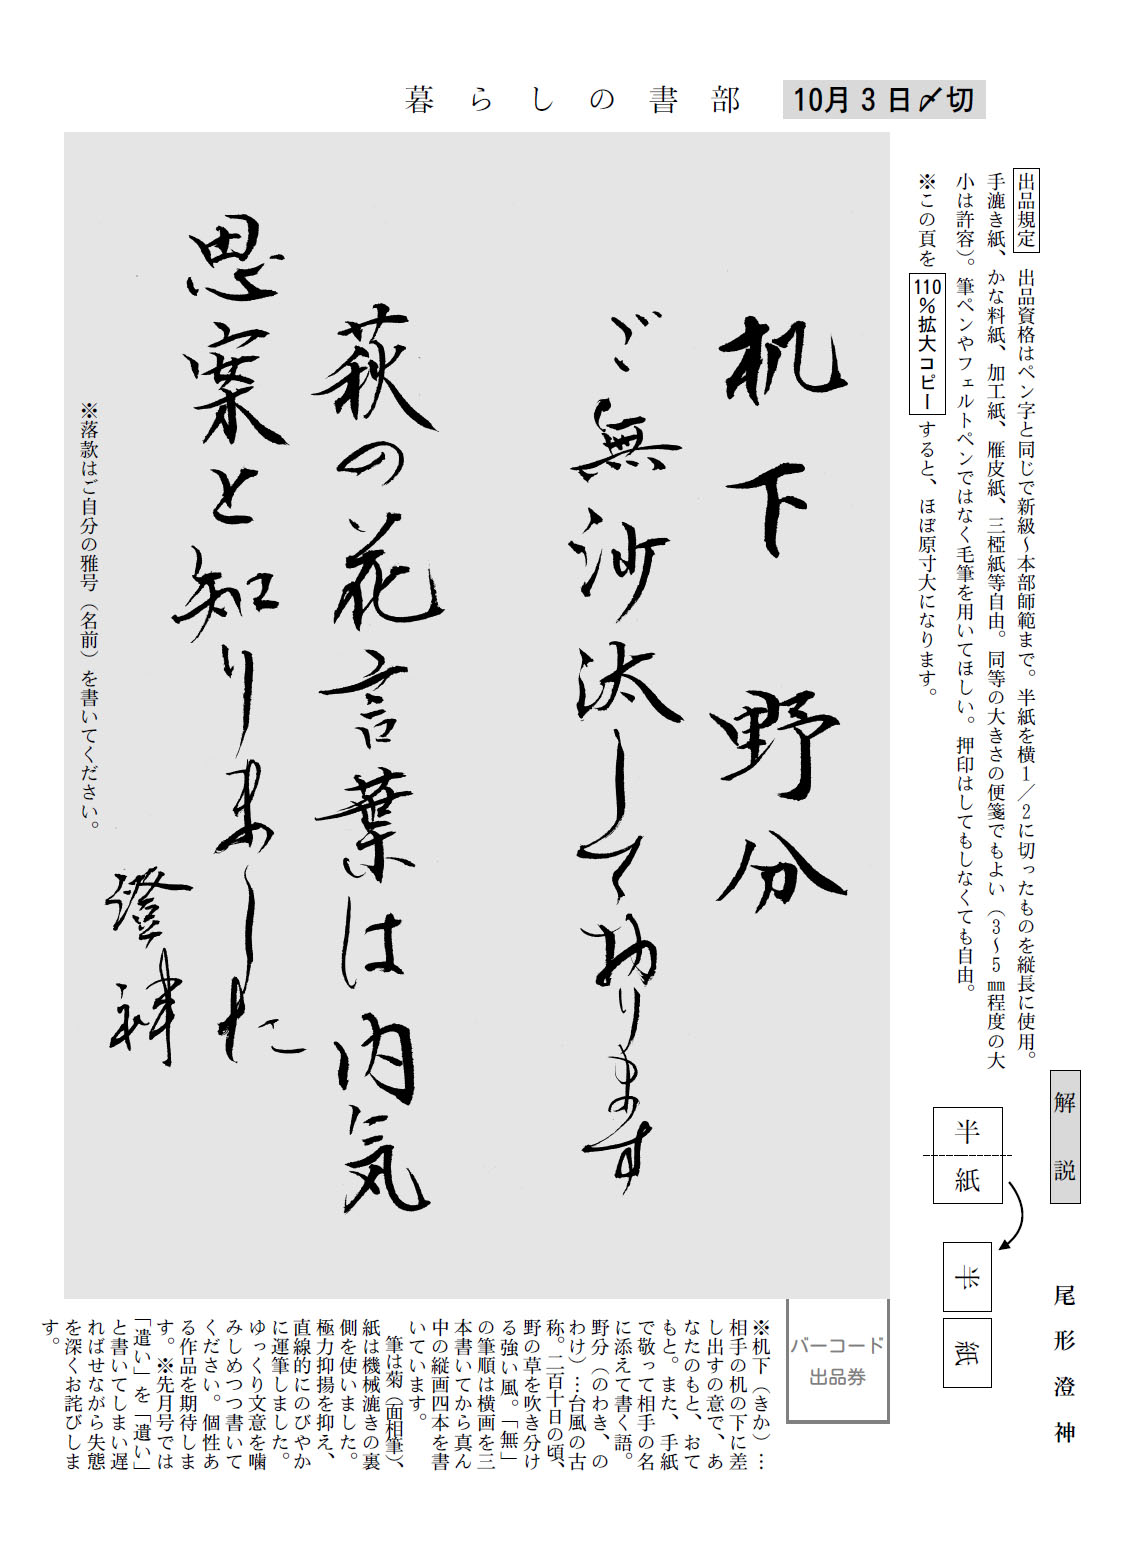 暮らしの書部
10月3日〆切
出品規定 出品資格はペン字と同じで新級～本部師範まで。半紙を横1／2に切ったものを縦長に使用。
手漉き紙、かな料紙、加工紙、雁皮紙、三椏紙等自由。同等の大きさの便箋でもよい（3～5㎜程度の大
小は許容）。筆ペンやフェルトペンではなく毛筆を用いてほしい。押印はしてもしなくても自由。
※この頁を110％拡大コピーすると、ほぼ原寸大になります。
机下 野分
ご無沙汰しております
萩の花言葉は内気
思案と知りました
澄神
※落款はご自分の雅号（名前）を書いてください。
解説
尾形澄神
半紙
半
紙
バーコード
出品券
※机下（きか）…
相手の机の下に差
し出すの意で、あ
なたのもと、おて
もと。また、手紙
で敬って相手の名
に添えて書く語。
野分（のわき、の
わけ）…台風の古
称。二百十日の頃、
野の草を吹き分け
る強い風。「無」
の筆順は横画を三
本書いてから真ん
中の縦画四本を書
いています。
筆は菊（面相筆）、
紙は機械漉きの裏
側を使いました。
極力抑揚を抑え、
直線的にのびやか
に運筆しました。
ゆっくり文意を噛
みしめつつ書いて
ください。個性あ
る作品を期待しま
す。 ※先月号では
「遣い」を「遺い」
と書いてしまい遅
ればせながら失態
を深くお詫びしま
す。